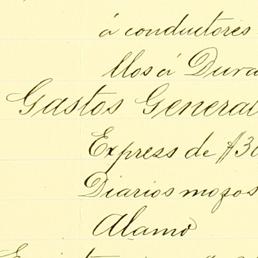 á conductores
llos á Dura
Gastos General
Express de $30
Diarios mozos
Alamo